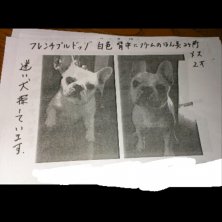 フレンチブルドッグ 白色 背中にクリームのはん点3ヶ所
メス
2才
迷い犬探しています。